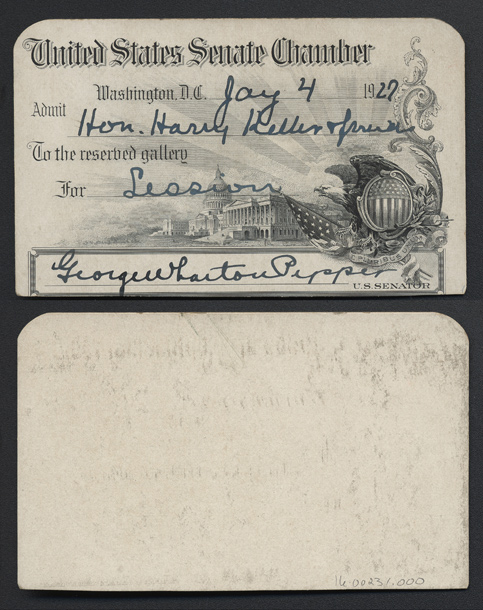 United States Senate Chamber
Washington, D.C. Jay 4 1927
Admit
Hon. Harry Keller & friend
To the reserved gallery
For Session
George Wharton Pepper
U.S. SENATOR
16.00231.000